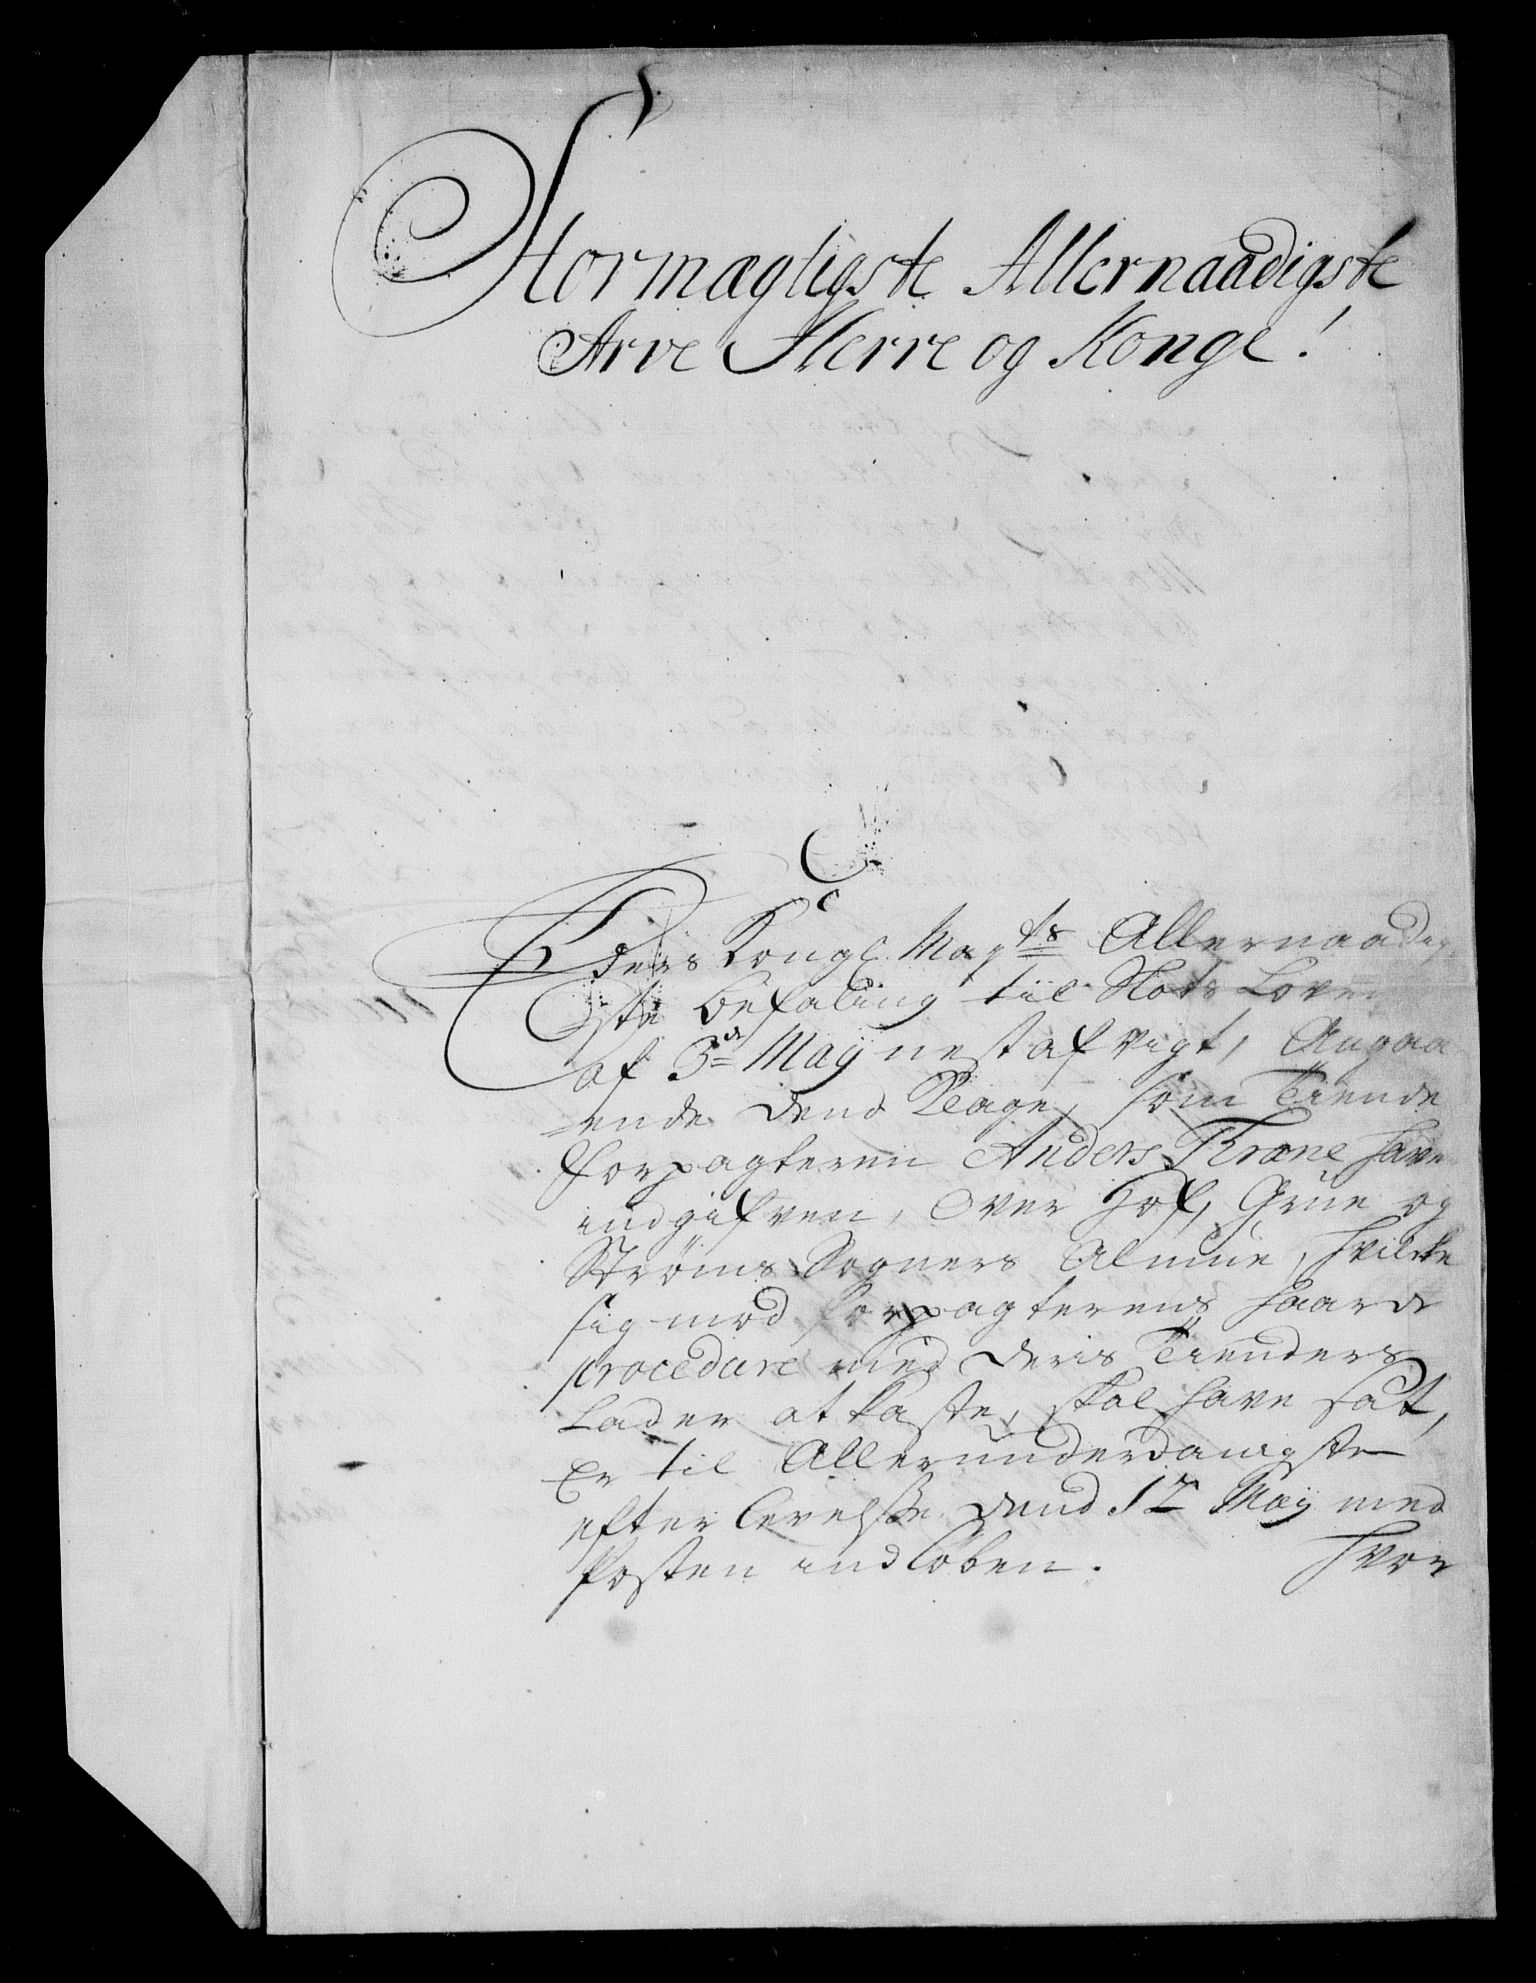 Stormægtigste Allernaadigste
Arve Herre og Konge!
Eders Kongl. May.ts Allernaadig
ste befaling til Slots Loven
af 3.de Maij nest afvigt, Angaa
ende dend Klage, som Tiende
forpagteren Anders Krone have
indgifven, over Hof, Grue og
Strøms Sogners Almue, hvilcke
sig mod forpagterens haarde
procedure med deris Tienders
Lader at kaste, skal have sat,
Er til Allerunderdanigste
efterlevelsse dend 12 Maij med
Posten indløben.
hvor